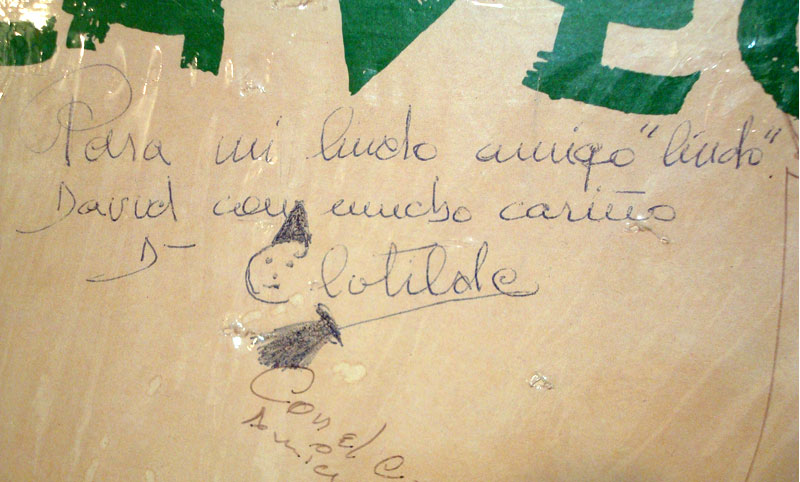 Para mi lindo amigo "lindo".
David con mucho cariño
D-
Clotilde
Con el